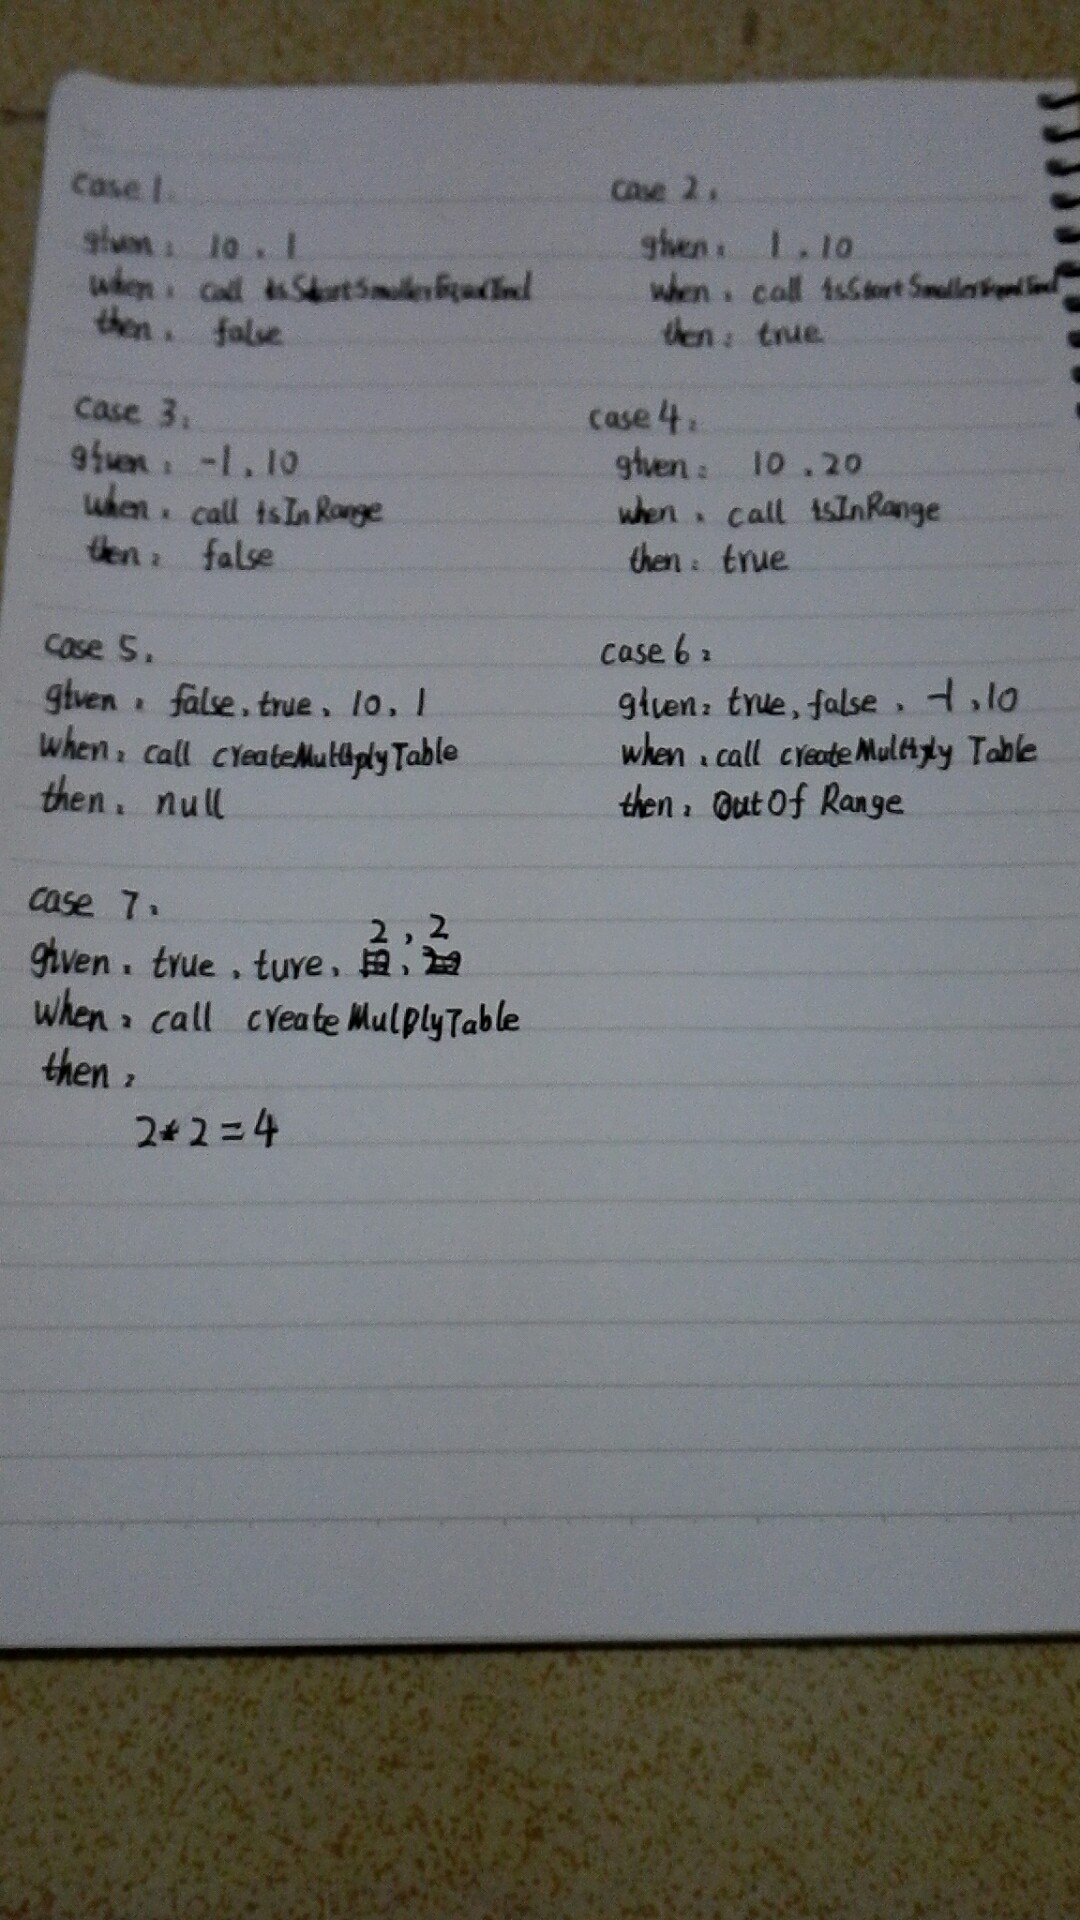 case 1.
given: 10, 1
when: call isStartSmallerEqualEnd
then: false
case 2:
given: 1, 10
when: call isStartSmallerEqualEnd
then: true
case 3:
given: -1, 10
when: call isInRange
then: false
case 4:
given: 10, 20
when: call isInRange
then: true
case 5:
given: false, true, 10, 1
when: call createMultiplyTable
then: null
case 6:
given: true, false, -1, 10
when: call createMultiply Table
then: OutOf Range
case 7:
given: true, ture, 2, 2
when: call createMulplyTable
then:
2*2=4